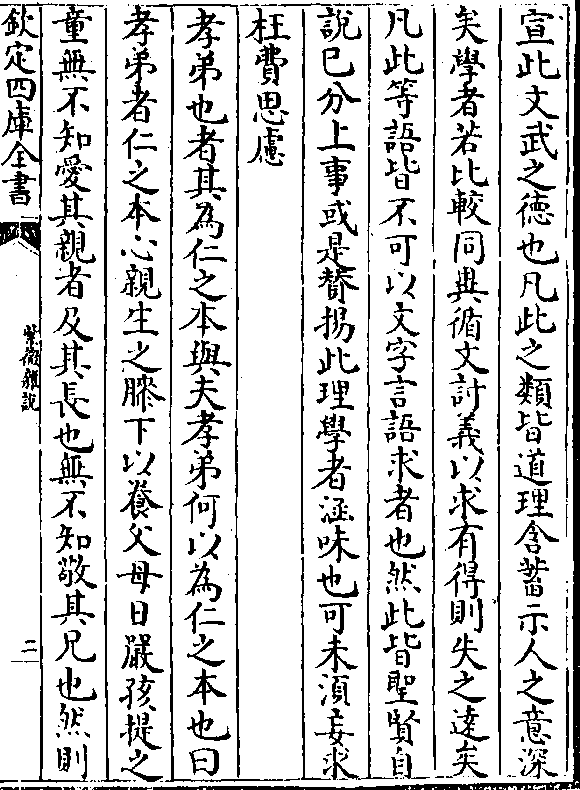 宣此文武之徳也凡此之類皆道理含蓄示人之意深
矣學者若比較同異循文討義以求有得則失之逺矣
凡此等語皆不可以文字言語求者也然此皆聖賢自
說已分上事或是賛揚此理學者涵味也可未須妄求
枉費思慮
孝弟也者其為仁之本與夫孝弟何以為仁之本也曰
孝弟者仁之本心親生之膝下以養父母日嚴孩提之
童無不知愛其親者及其長也無不知敬其兄也然則
欽定四庫全書
紫微雜說
二